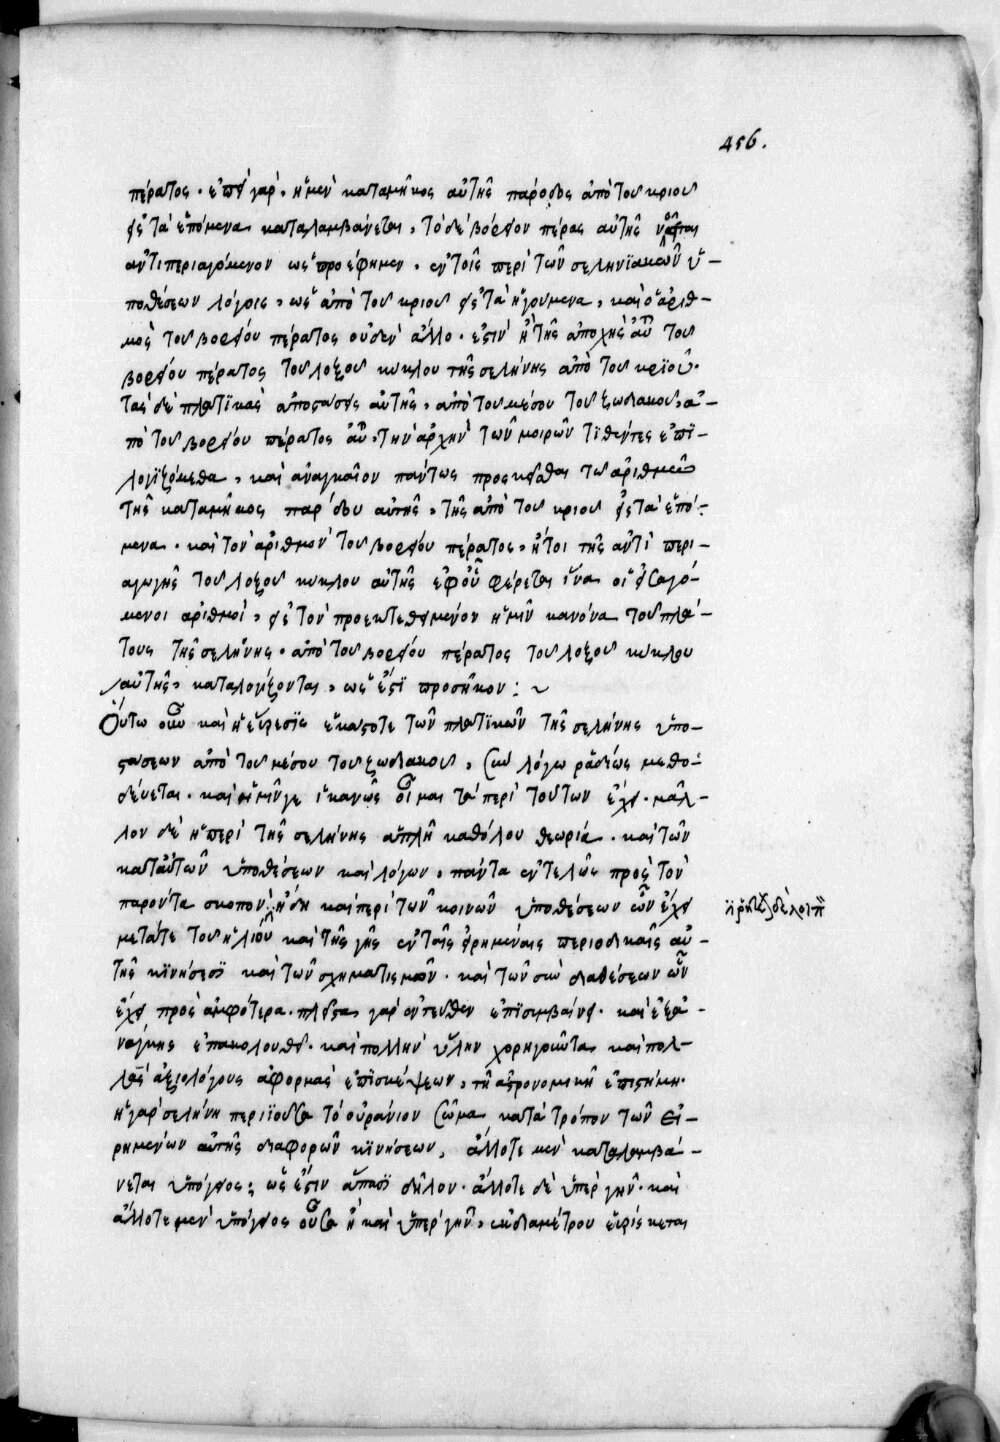 456.
πέρατος · ἐπεὶ γὰρ, ἡ μὲν κατὰ μῆκος αὐτῆς πάροδος ἀπὸ τοῦ κριοῦ
εἰς τὰ ἑπόμενα καταλαμβάνεται, τὸ δὲ βόρειον πέρας αὐτῆς
ἀντιπεριαγόμενον ὡς προέφημεν · ἐν τοῖς περὶ τῶν σεληνϊακῶν ὑ-
ποθέσεων λόγοις, ὡς ἀπὸ τοῦ κριοῦ εἰς τὰ ἡγούμενα, καὶ ὁ ἀριθ-
μὸς τοῦ βορείου πέρατος οὐδὲν ἄλλο · ἐστὶν ἢ τῆς ἀποχῆς αὐτοῦ τοῦ
βορείου πέρατος τοῦ λοξοῦ κύκλου τῆς σελήνης ἀπὸ τοῦ κρϊοῦ ·
τὰς δὲ πλατϊκὰς ἀποστάσεις αὐτῆς, ἀπὸ τοῦ μέσου τοῦ ζωδιακοῦ, ἀ-
πὸ τοῦ βορείου πέρατος αὐτοῦ, τὴν ἀρχὴν τῶν μοιρῶν τϊθέντες ἐπϊ-
λογϊζόμεθα, καὶ ἀναγκαῖον πάντως προσκεῖσθαι τῶ ἀριθμῶ
τῆς κατὰ μῆκος παρόδου αὐτῆς, τῆς ἀπὸ τοῦ κριοῦ εἰς τὰ ἑπό-
μενα · καὶ τὸν ἀριθμὸν τοῦ βορείου πέρατος, ἤτοι τῆς ἀντιπερι-
αγωγῆς τοῦ λοξοῦ κύκλου αὐτῆς ἐφ' οὗ φέρεται ἵνα οἱ εἰσαγό-
μενοι ἀριθμοὶ, εἰς τὸν προεκτεθειμένον ἡμῖν κανόνα τοῦ πλά-
τους τῆς σελήνης · ἀπὸ τοῦ βορείου πέρατος τοῦ λοξοῦ κύκλου
αὐτῆς, καταλογίζονται, ὡς ἐστϊ προσῆκον : ~
Οὕτω οὖν καὶ ἡ εὕρεσϊς ἑκάστοτε τῶν πλατϊκῶν τῆς σελήνης ὑπο-
στάσεων ἀπὸ τοῦ μέσου τοῦ ζωδιακοῦ, σὺν λόγω ῥαδίως μεθο-
δεύεται · καὶ ἡμῖν γε ἱκανῶς οἶμαι τὰ περὶ τούτων ἔχει · μᾶλ-
λον δὲ ἡ περὶ τῆς σελήνης ἁπλῆ καθόλου θεωρία · καὶ τῶν
κατ' αὐτῶν ὑποθέσεων καὶ λόγων, πάντα ἐντελῶς πρὸς τὸν
παρόντα σκοπὸν · ἤδη καὶ περὶ τῶν κοινῶν ὑποθέσεων ὧν ἔχει
μετά τε τοῦ ἡλίου καὶ τῆς γῆς ἐν ταῖς εἰρημέναις περιοδικαῖς αὐ-
τῆς κϊνήσεσϊ καὶ τῶν σχηματισμῶν · καὶ τῶν συνδιαθέσεων ὧν
ἔχει πρὸς ἀμφότερα · πλεῖστα γὰρ ἐντεῦθεν ἐπϊσυμβαίνει · καὶ ἐξ ἀ-
νάγκης ἐπακολουθεῖ · καὶ πολλὴν ὕλην χορηγοῦντα καὶ πολ-
λὰς ἀξιολόγους ἀφορμὰς ἐπϊσκέψεων, τῆ ἀστρονομικῆ ἐπιστήμη ·
ἡ γὰρ σελήνη περιϊοῦσα τὸ οὐράνιον σῶμα κατὰ τρόπον τῶν εἰ-
ρημένων αὐτῆς διαφορῶν κϊνήσεων, ἄλλοτε μὲν καταλαμβά-
νεται ὑπόγειος ; ὡς ἐστιν ἅπασϊ δῆλον · ἄλλοτε δὲ ὑπὲρ γῆν · καὶ
ἄλλοτε μὲν ὑπόγειος οὖσα ἢ καὶ ὑπὲρ γῆν, ἐκ διαμέτρου εὑρίσκεται